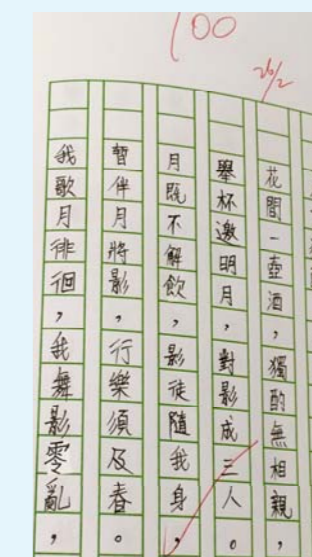 100
26/2
花間一壺酒，獨酌無相親，
舉杯邀明月，對影成三人。
月既不解飲，影徒隨我身，
暫伴月將影，行樂須及春。
我歌月徘徊，我舞影零亂，